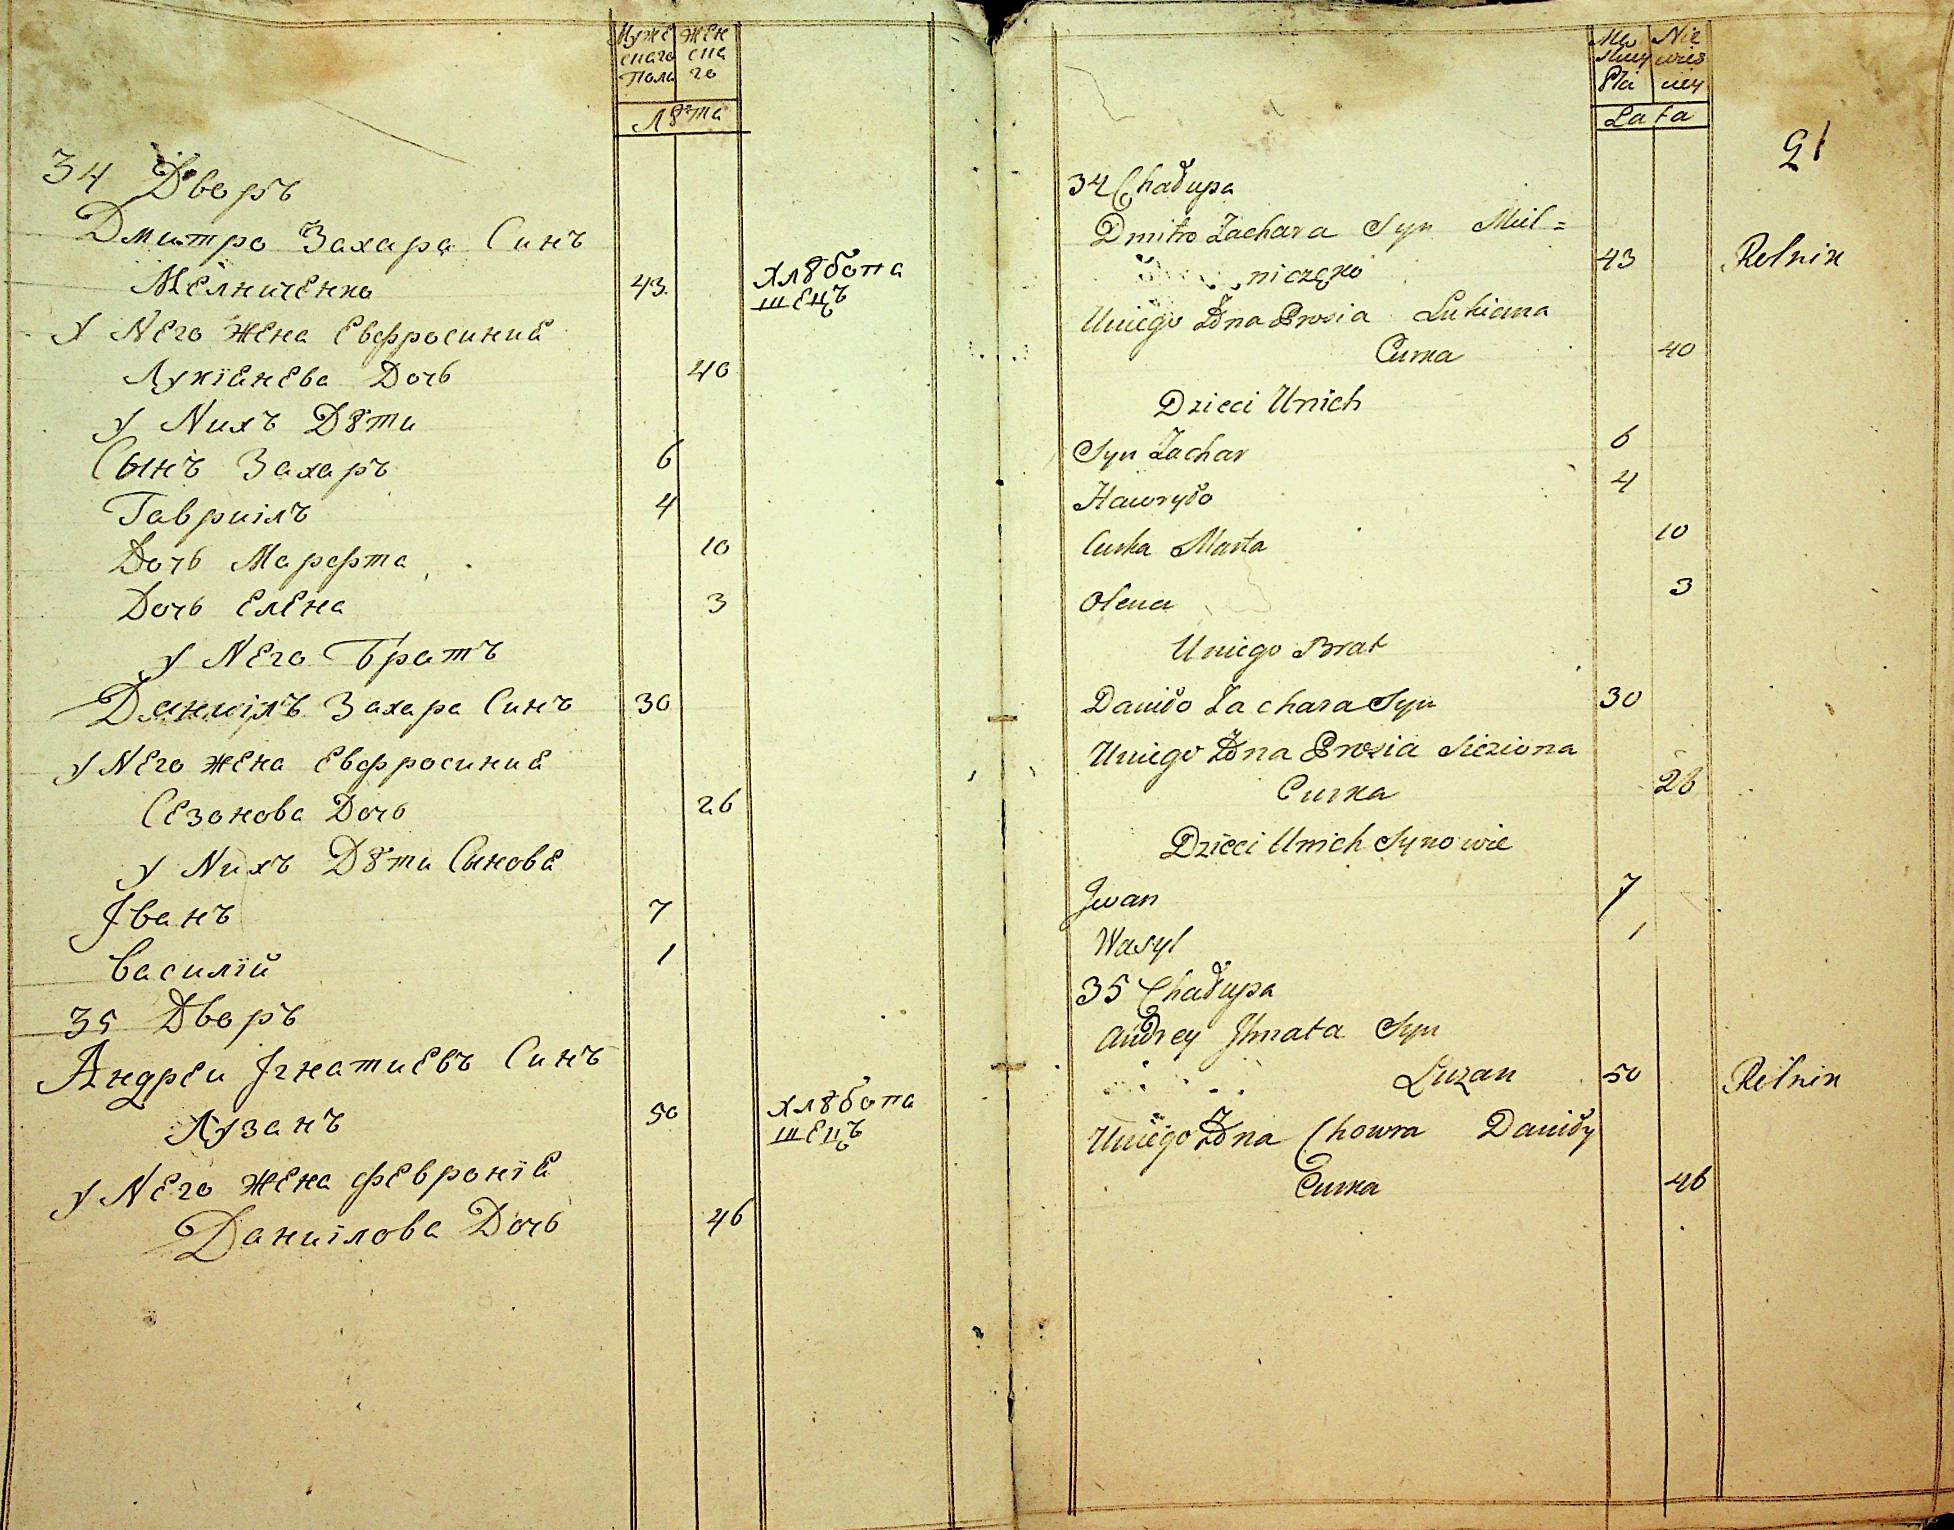 Муже Жен
скаго ска
Пола го
Лѣта
34 Дворъ
Дмитро Захара Синъ
Мелниченко 43 хлѣбопа
шецъ
У Него Жена Евфросиния
Лукіанева Дочь 40
У Нихъ Дѣти
Сынъ Захаръ 6
Гавриілъ 4
Дочь Марфта 10
Дочь Елена 3
У Него Братъ
Даниілъ Захара Синъ 30
У Него Жена Евфросиния
Сезонова Дочь 26
У Нихъ Дѣти Сынове
Іванъ 7
Василій 1
35 Дворъ
Андреи Ігнатиевъ Синъ
Лузанъ 50 хлѣбопа
шецъ
У Него Жена Февронія
Даниілова Дочь 46
Nie
Płci
Lata
21
34 Chałupa
Dmitro Zachara Syn Miel=
niczęko 43 Rolnik
Uniego Żona Prosia Lukiana
Curka 40
Dzieci Unich
Syn Zachar 6
Hawryło 4
Curka Marta 10
Olena 3
Uniego Brat
Daniło Zachara Syn 30
Uniego Żona Prosia Sieziona
Curka 26
Dzieci Unich Synowie
Jwan 7
Wasyl 1
35 Chałupa
Andrey Jhnata Syn
Luzan 50 Rolnik
Uniego Żona Chowra Daniły
Curka 46